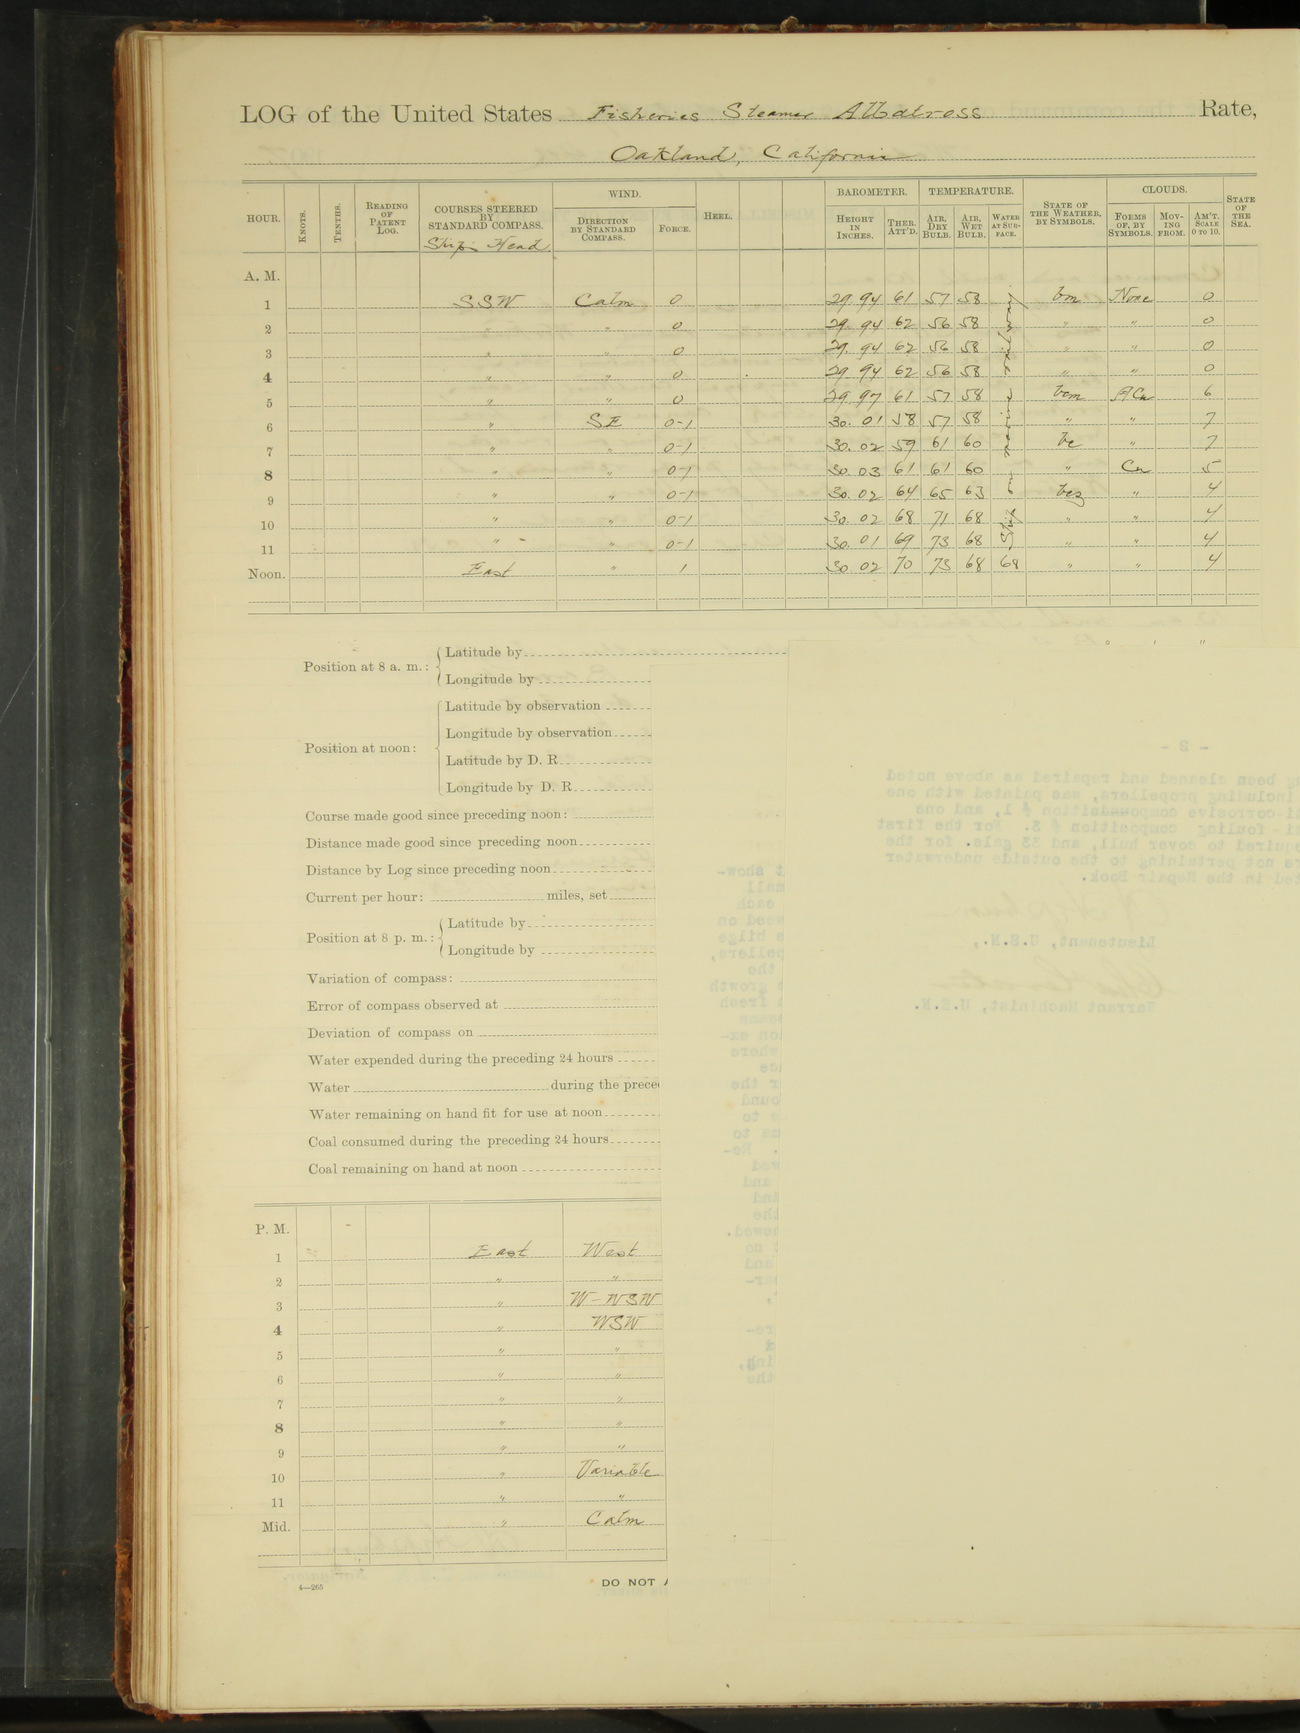 LOG of the United States Fisheries Steamer Albatross Rate,
Oakland, California
HOUR. KNOTS. TENTHS. READING OF PATENT LOG. COURSES STEERED BY STANDARD COMPASS. Ship's Head WIND. DIRECTION BY STANDARD COMPASS. FORCE. HEEL. BAROMETER. HEIGHT IN INCHES. THER. ATT'D. TEMPERATURE. AIR, DRY BULB. AIR, WET BULB. WATER AT SURFACE. STATE OF THE WEATHER, BY SYMBOLS. CLOUDS. FORMS OF, BY SYMBOLS. MOVING FROM. AM'T. SCALE 0 TO 10. STATE OF THE SEA.
A. M.
1 SSW Calm 0 29.94 61 57 58 bm None 0
2 " " 0 29.94 62 56 58 " " 0
3 " " 0 29.94 62 56 58 " " 0
4 " " 0 29.94 62 56 58 " " 0
5 " " 0 29.97 61 57 58 bcm ACu 6
6 " SE 0-1 30.01 58 57 58 " " 7
7 " " 0-1 30.02 59 61 60 bc " 7
8 " " 0-1 30.03 61 61 60 " Cu 5
9 " " 0-1 30.02 64 65 63 bcz " 4
10 " " 0-1 30.02 68 71 68 " " 4
11 " " 0-1 30.01 69 73 68 " " 4
Noon. East " 1 30.02 70 73 68 68 " " 4
Position at 8 a. m.: Latitude by
Longitude by
Position at noon: Latitude by observation
Longitude by observation
Latitude by D. R.
Longitude by D. R.
Course made good since preceding noon:
Distance made good since preceding noon
Distance by Log since preceding noon
Current per hour: miles, set
Position at 8 p. m.: Latitude by
Longitude by
Variation of compass:
Error of compass observed at
Deviation of compass on
Water expended during the preceding 24 hours
Water during the prece
Water remaining on hand fit for use at noon
Coal consumed during the preceding 24 hours
Coal remaining on hand at noon
P. M.
1 East West
2 " "
3 " W-WSW
4 " WSW
5 " "
6 " "
7 " "
8 " "
9 " "
10 " Variable
11 " "
Mid. " Calm
4—265
DO NOT